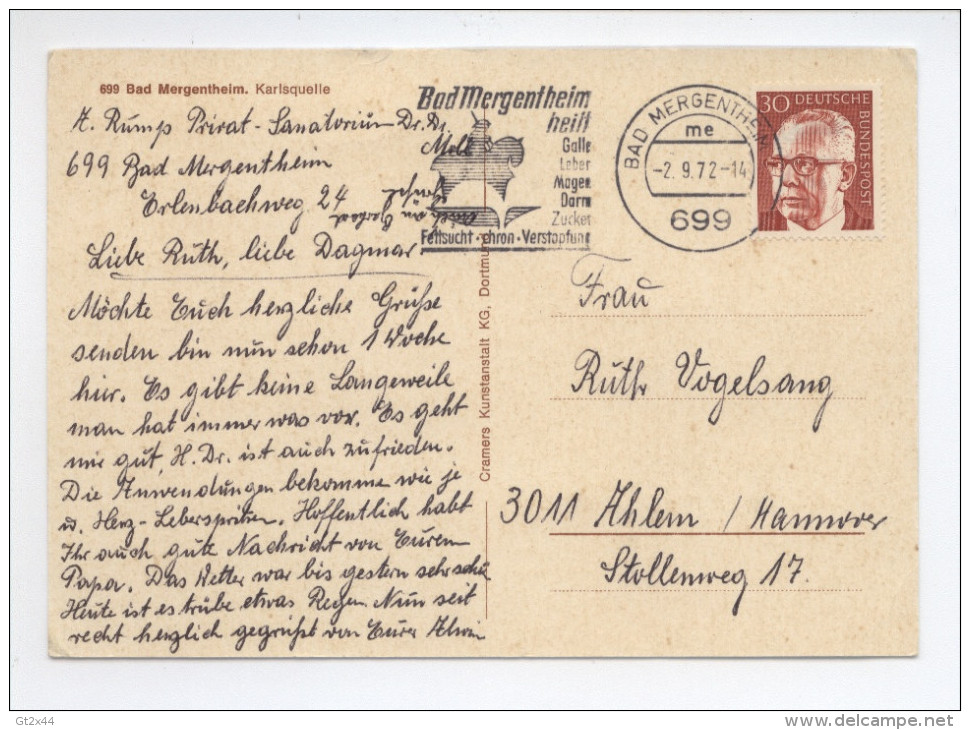 699 Bad Mergentheim. Karlsquelle
A. Rump Privat-Sanatorium Dr. Dr.
Melk
699 Bad Mergentheim
Erlenbachweg 24
Liebe Ruth, liebe Dagmar
Möchte Euch herzliche Grüße
senden bin nun schon 1 Woche
hier. Es gibt keine Langeweile
man hat immer was vor. Es geht
mir gut, H. Dr. ist auch zufrieden.
Die Anwendungen bekomme wie je
u. Herz-Leberspritzen. Hoffentlich habt
Ihr auch gute Nachricht von Eurem
Papa. Das Wetter war bis gestern sehr schön
Heute ist es trübe etwas Regen. Nun seit
recht herzlich gegrüßt von Eurer Alwin
Cramers Kunstanstalt KG, Dortmund
Bad Mergentheim
heilt
Galle
Leber
Magen
Darm
Zucker
Fettsucht · chron. Verstopfung
BAD MERGENTHEIM
me
-2. 9.72-14
699
30 DEUTSCHE
BUNDESPOST
Frau
Ruth Vogelsang
3011 Ahlem / Hannover
Stollenweg 17.
Gt2x44
delcampe.net